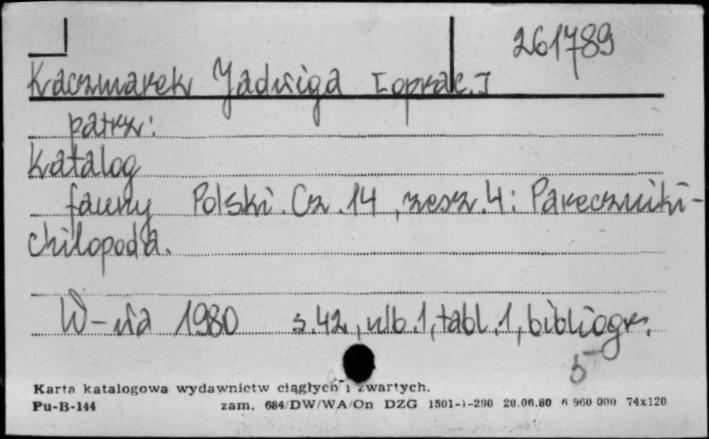 261789
Kaczmarek Jadwiga [oprac.]
patrz:
Katalog
fauny Polski. Cz. 14, zesz. 4: Pareczniki-
chilopoda.
W-wa 1980 s. 42, nlb. 1, tabl. 1, bibliogr.
5
Karta katalogowa wydawnictw ciągłych i zwartych.
Pu-B-144 zam. 684/DW/WA/On DZG 1501-1-290 20.06.80 6 960 000 74x120